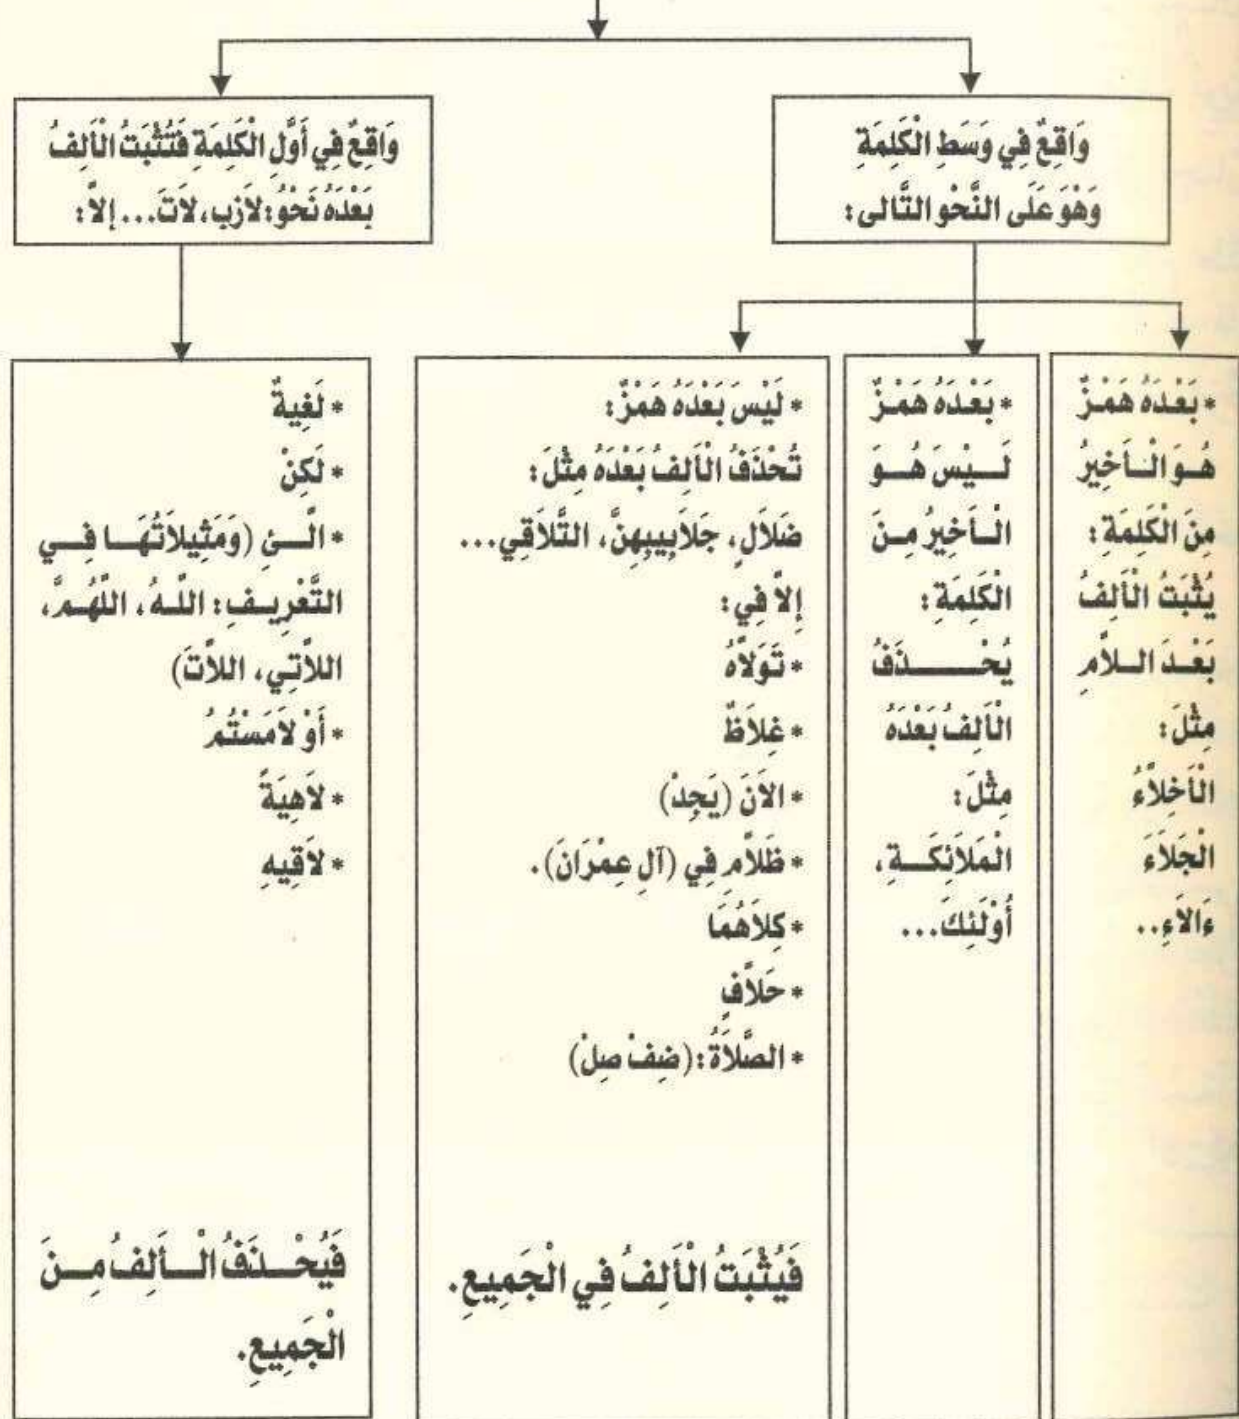 وَاقِعٌ فِي وَسَطِ الْكَلِمَةِ
وَهْوَ عَلَى النَّحْوِ التَّالى :
وَاقِعٌ فِي أَوَّلِ الْكَلِمَةِ فَتُثْبَتُ الْأَلِفُ
بَعْدَهُ نَحْوُ: لَازِب، لَاتَ... إِلاَّ :
* بَعْدَهُ هَمْزٌ
هُوَ الْأَخِيرُ
مِنَ الْكَلِمَةِ :
يُثْبَتُ الْأَلِفُ
بَعْدَ اللاَّمِ
مِثْلَ :
الْأَخِلاَّءُ
الْجَلَاءَ
ءَالَاءِ..
* بَعْدَهُ هَمْزٌ
لَيْسَ هُوَ
الْأَخِيرُ مِنَ
الْكَلِمَةِ :
يُحْذَفُ
الْأَلِفُ بَعْدَهُ
مِثْلَ :
الْمَلَائِكَةِ،
أُوْلَئِكَ...
* لَيْسَ بَعْدَهُ هَمْزٌ :
تُحْذَفُ الْأَلِفُ بَعْدَهُ مِثْلَ :
ضَلَالٍ، جَلَابِيبِهِنَّ، التَّلَاقِي...
إِلاَّ فِي :
* تَوَلاَّهُ
* غِلَاظٌ
* الآنَ (يَجِدْ)
* ظَلاَّمٍ فِي (آلِ عِمْرَانَ).
* كِلَاهُمَا
* حَلاَّفٍ
* الصَّلَاةُ : (ضِفْ صِلْ)
فَيُثْبَتُ الْأَلِفُ فِي الْجَمِيعِ.
* لَغِيةٌ
* لَكِنْ
* الَّئِ (وَمَثِيلَاتُهَا فِي
التَّعْرِيفِ : اللَّهُ، اللَّهُمَّ،
اللاَّتِي، اللاَّتَ)
* أَوْ لَامَسْتُمُ
* لَاهِيَةً
* لَاقِيهِ
فَيُحْذَفُ الْأَلِفُ مِنَ
الْجَمِيعِ.